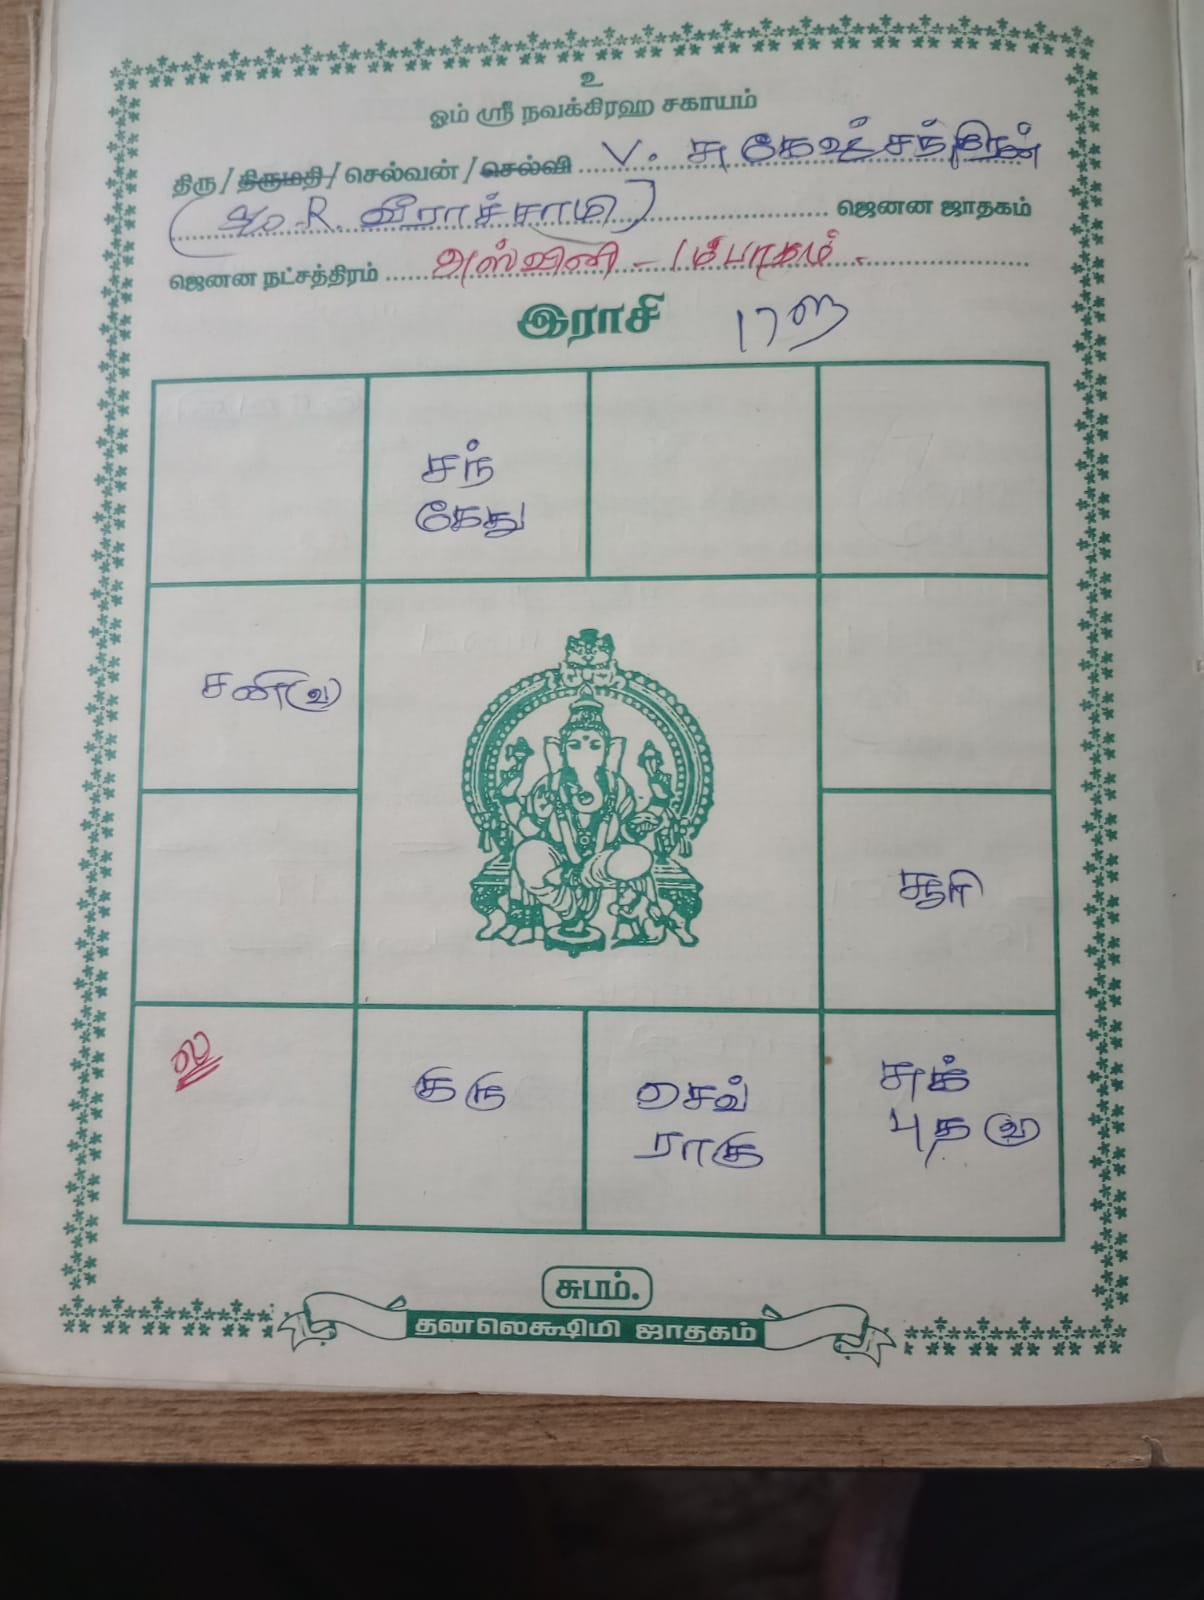 உ
ஓம் ஸ்ரீ நவக்கிரஹ சகாயம்
திரு / திருமதி / செல்வன் / செல்வி V. சுகேஷ்சந்திரன்
R. வீராச்சாமி ஜெனன ஜாதகம்
ஜெனன நட்சத்திரம் அஸ்வினி - 1ம்பாகம்.
இராசி
சந்
கேது
சனி(வ)
சூரி
ல
குரு
செவ்
ராகு
சுக்
புத (வ)
சுபம்.
தனலெக்ஷிமி ஜாதகம்